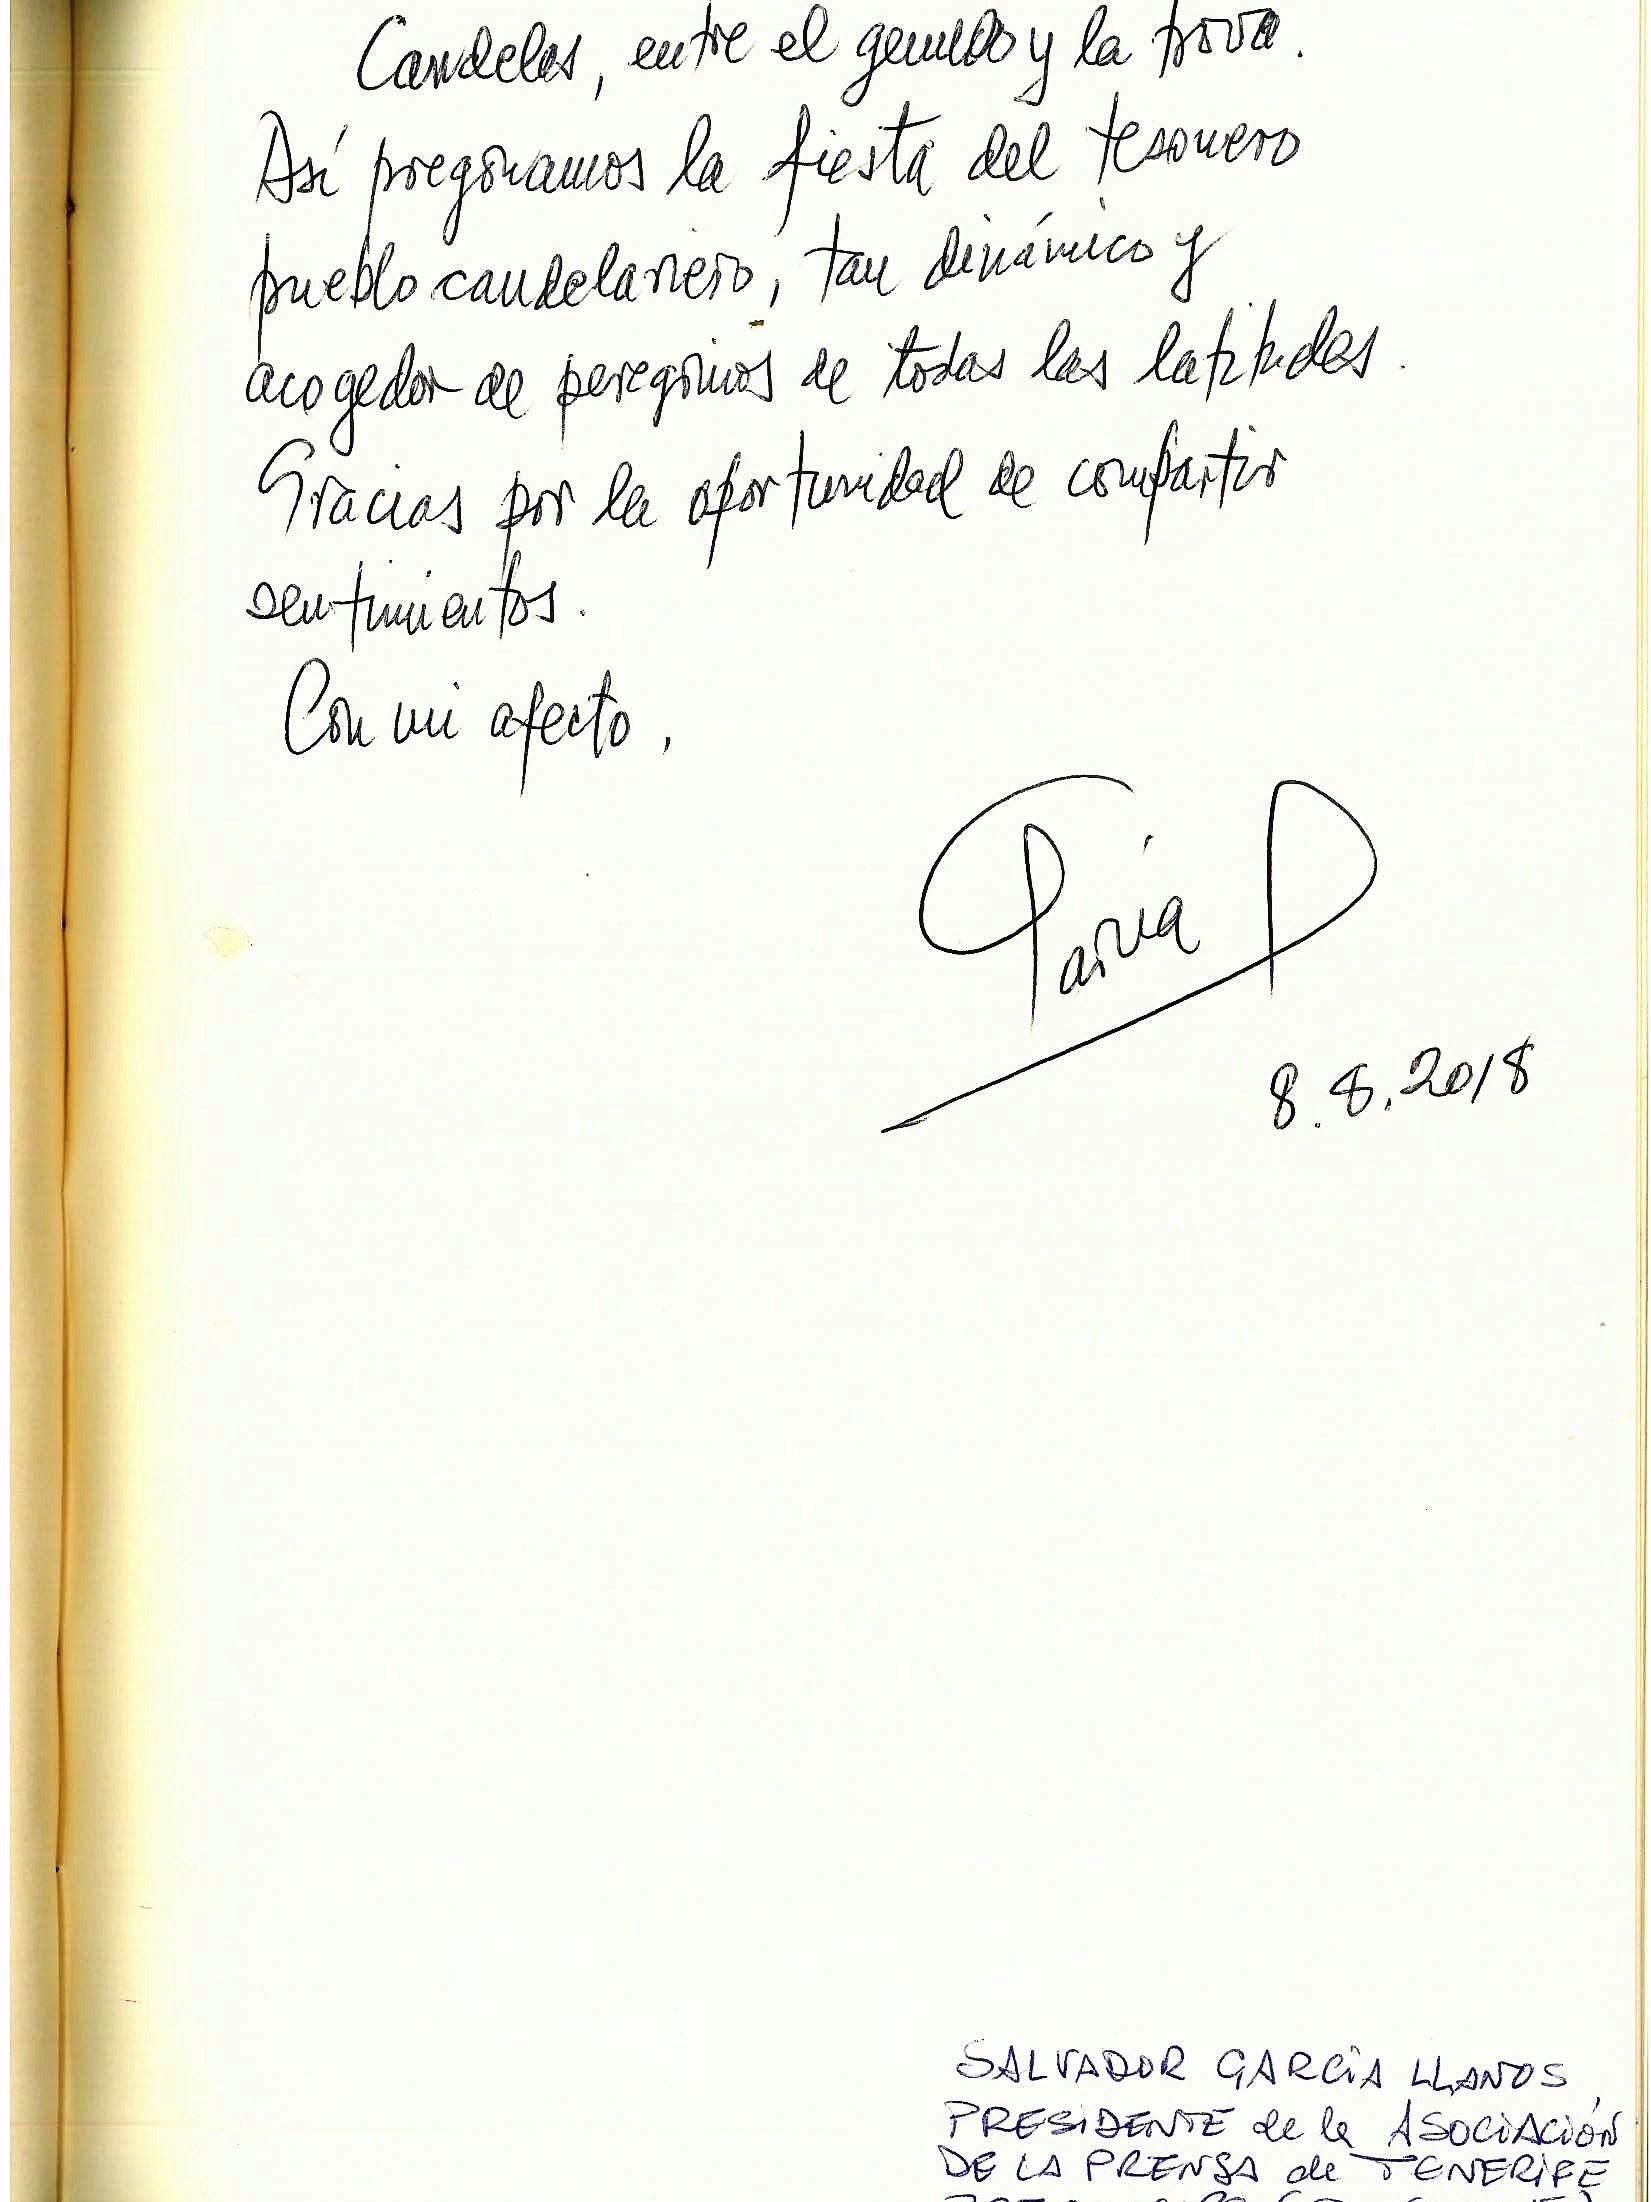 Candelas, entre el gemido y la trova.
Así pregonamos la fiesta del tesonero
pueblo candelariero, tan dinámico y
acogedor de peregrinos de todas las latitudes.
Gracias por la oportunidad de compartir
sentimientos.
Con mi afecto,
García
8.8.2018
SALVADOR GARCÍA LLANOS,
PRESIDENTE de la ASOCIACIÓN
DE LA PRENSA de TENERIFE